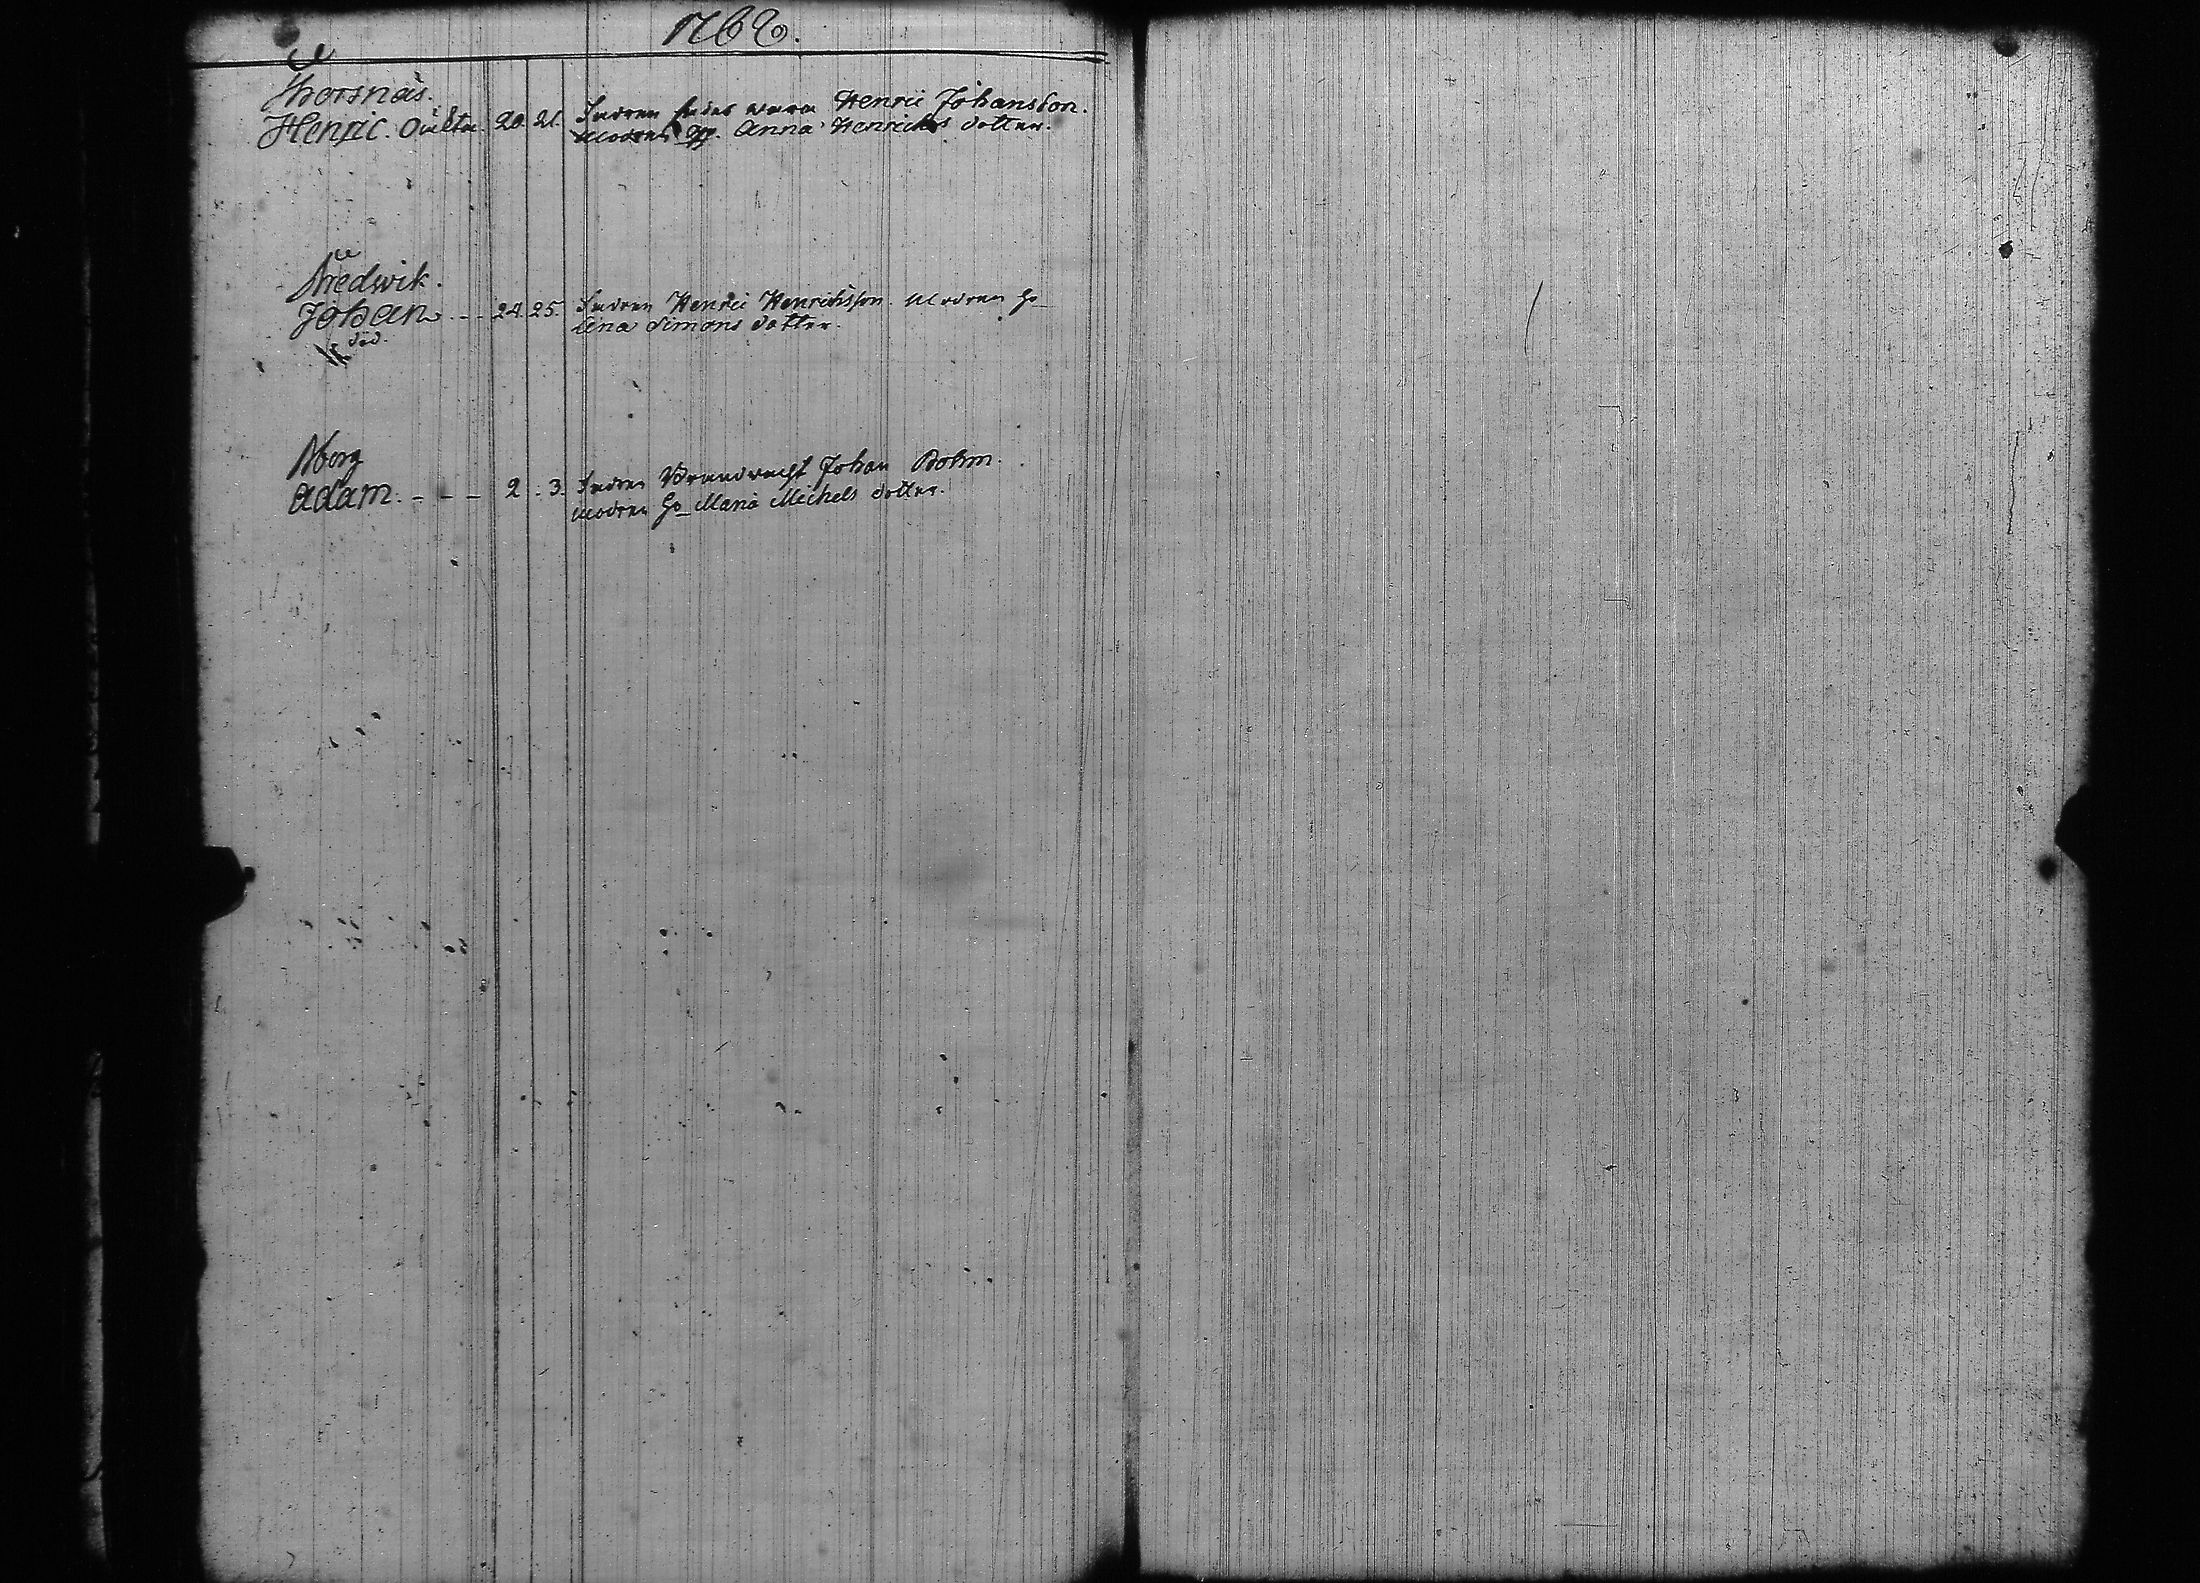 1762.
Thorsnäs.
Henric. Oäkta. 20. 21. Fadren sades wara Henric Johansson.
Modren Anna Henrichs dotter.
Johan - - 24. 25. Fadren Henric Henrichsson. Modren H:o
Lena Simons dotter.
död.
Adam. - - - 2. 3. Fadren Johan Bohm.
Modren H:o Maria Michels dotter.